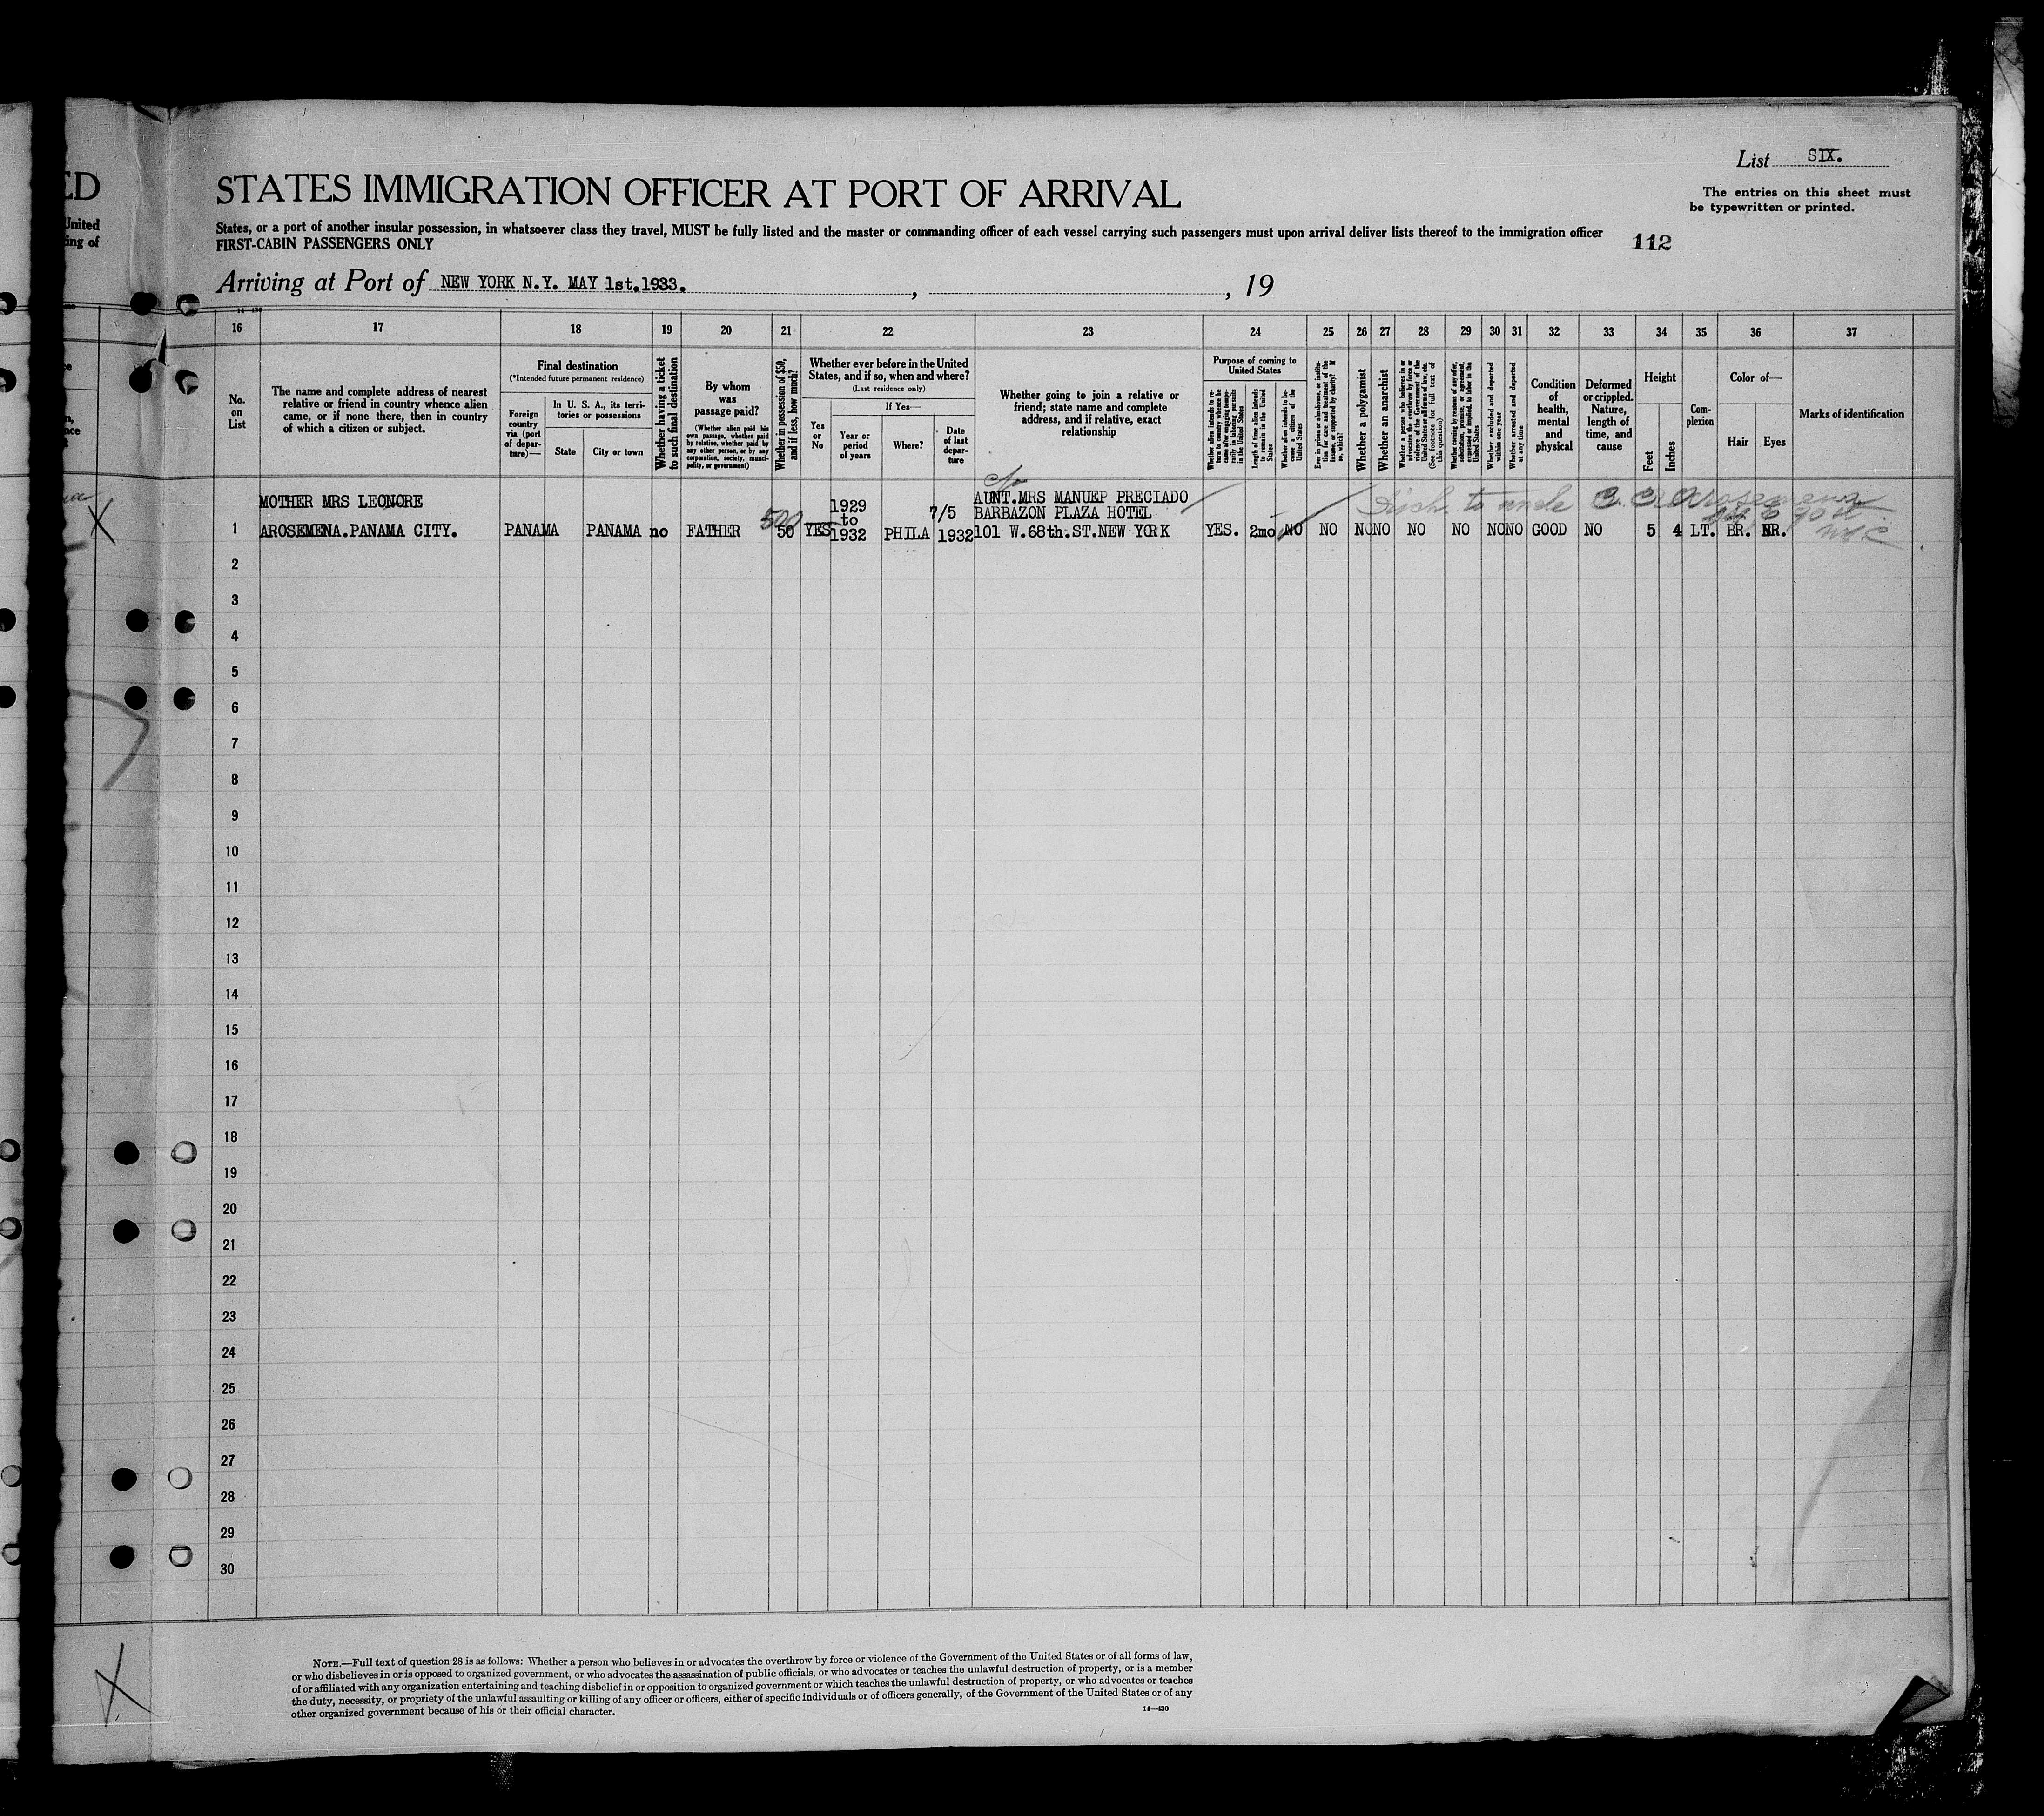 List SIX.
ED
STATES IMMIGRATION OFFICER AT PORT OF ARRIVAL
The entries on this sheet must
be typewritten or printed.
United
ing of
States, or a port of another insular possession, in whatsoever class they travel, MUST be fully listed and the master or commanding officer of each vessel carrying such passengers must upon arrival deliver lists thereof to the immigration officer
FIRST-CABIN PASSENGERS ONLY
112
Arriving at Port of NEW YORK N.Y. MAY 1st.1933. , , 19
14-430
16 17 18 19 20 21 22 23 24 25 26 27 28 29 30 31 32 33 34 35 36 37
No.
on
List
The name and complete address of nearest
relative or friend in country whence alien
came, or if none there, then in country
of which a citizen or subject.
Final destination
(*Intended future permanent residence)
Foreign
country
via (port
of depar-
ture)—
In U. S. A., its terri-
tories or possessions
State
City or town
Whether having a ticket
to such final destination
By whom
was
passage paid?
(Whether alien paid his
own passage, whether paid
by relative, whether paid by
any other person, or by any
corporation, society, munici-
pality, or government)
Whether in possession of $50,
and if less, how much?
Whether ever before in the United
States, and if so, when and where?
(Last residence only)
Yes
or
No
If Yes—
Year or
period
of years
Where?
Date
of last
depar-
ture
Whether going to join a relative or
friend; state name and complete
address, and if relative, exact
relationship
Purpose of coming to
United States
Whether alien intends to re-
turn to country whence he
came after engaging tempo-
rarily in laboring pursuits
in the United States
Length of time alien intends
to remain in the United
States
Whether alien intends to be-
come a citizen of the
United States
Ever in prison or almshouse, or institu-
tion for care and treatment of the
insane, or supported by charity? If
so, which?
Whether a polygamist
Whether an anarchist
Whether a person who believes in or
advocates the overthrow by force or
violence of the Government of the
United States or all forms of law, etc.
(See footnote for full text of
this question)
Whether coming by reason of any offer,
solicitation, promise, or agreement,
expressed or implied, to labor in the
United States
Whether excluded and deported
within one year
Whether arrested and deported
at any time
Condition
of
health,
mental
and
physical
Deformed
or crippled.
Nature,
length of
time, and
cause
Height
Feet
Inches
Com-
plexion
Color of—
Hair
Eyes
Marks of identification
c/o
MOTHER MRS LEONORE 1929 AUNT.MRS MANUEP PRECIADO Disch. to uncle C. C. Arosemena
500 to 7/5 BARBAZON PLAZA HOTEL
1 AROSEMENA.PANAMA CITY. PANAMA PANAMA no FATHER 50 YES 1932 PHILA 1932 101 W.68th.ST.NEW YORK YES. 2mo NO NO NO NO NO NO NO NO GOOD NO 5 4 LT. BR. BR. NYC
2
3
4
5
6
7
8
9
10
11
12
13
14
15
16
17
18
19
20
21
22
23
24
25
26
27
28
29
30
NOTE.—Full text of question 28 is as follows: Whether a person who believes in or advocates the overthrow by force or violence of the Government of the United States or of all forms of law,
or who disbelieves in or is opposed to organized government, or who advocates the assassination of public officials, or who advocates or teaches the unlawful destruction of property, or is a member
of or affiliated with any organization entertaining and teaching disbelief in or opposition to organized government or which teaches the unlawful destruction of property, or who advocates or teaches
the duty, necessity, or propriety of the unlawful assaulting or killing of any officer or officers, either of specific individuals or of officers generally, of the Government of the United States or of any
other organized government because of his or their official character.
14—430